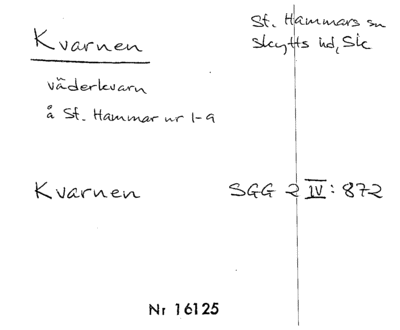 Kvarnen
St. Hammars sn
Skytts hd, Sk
väderkvarn
å St. Hammar nr 1-9
Kvarnen
SGG 2 IV: 872
Nr 16125